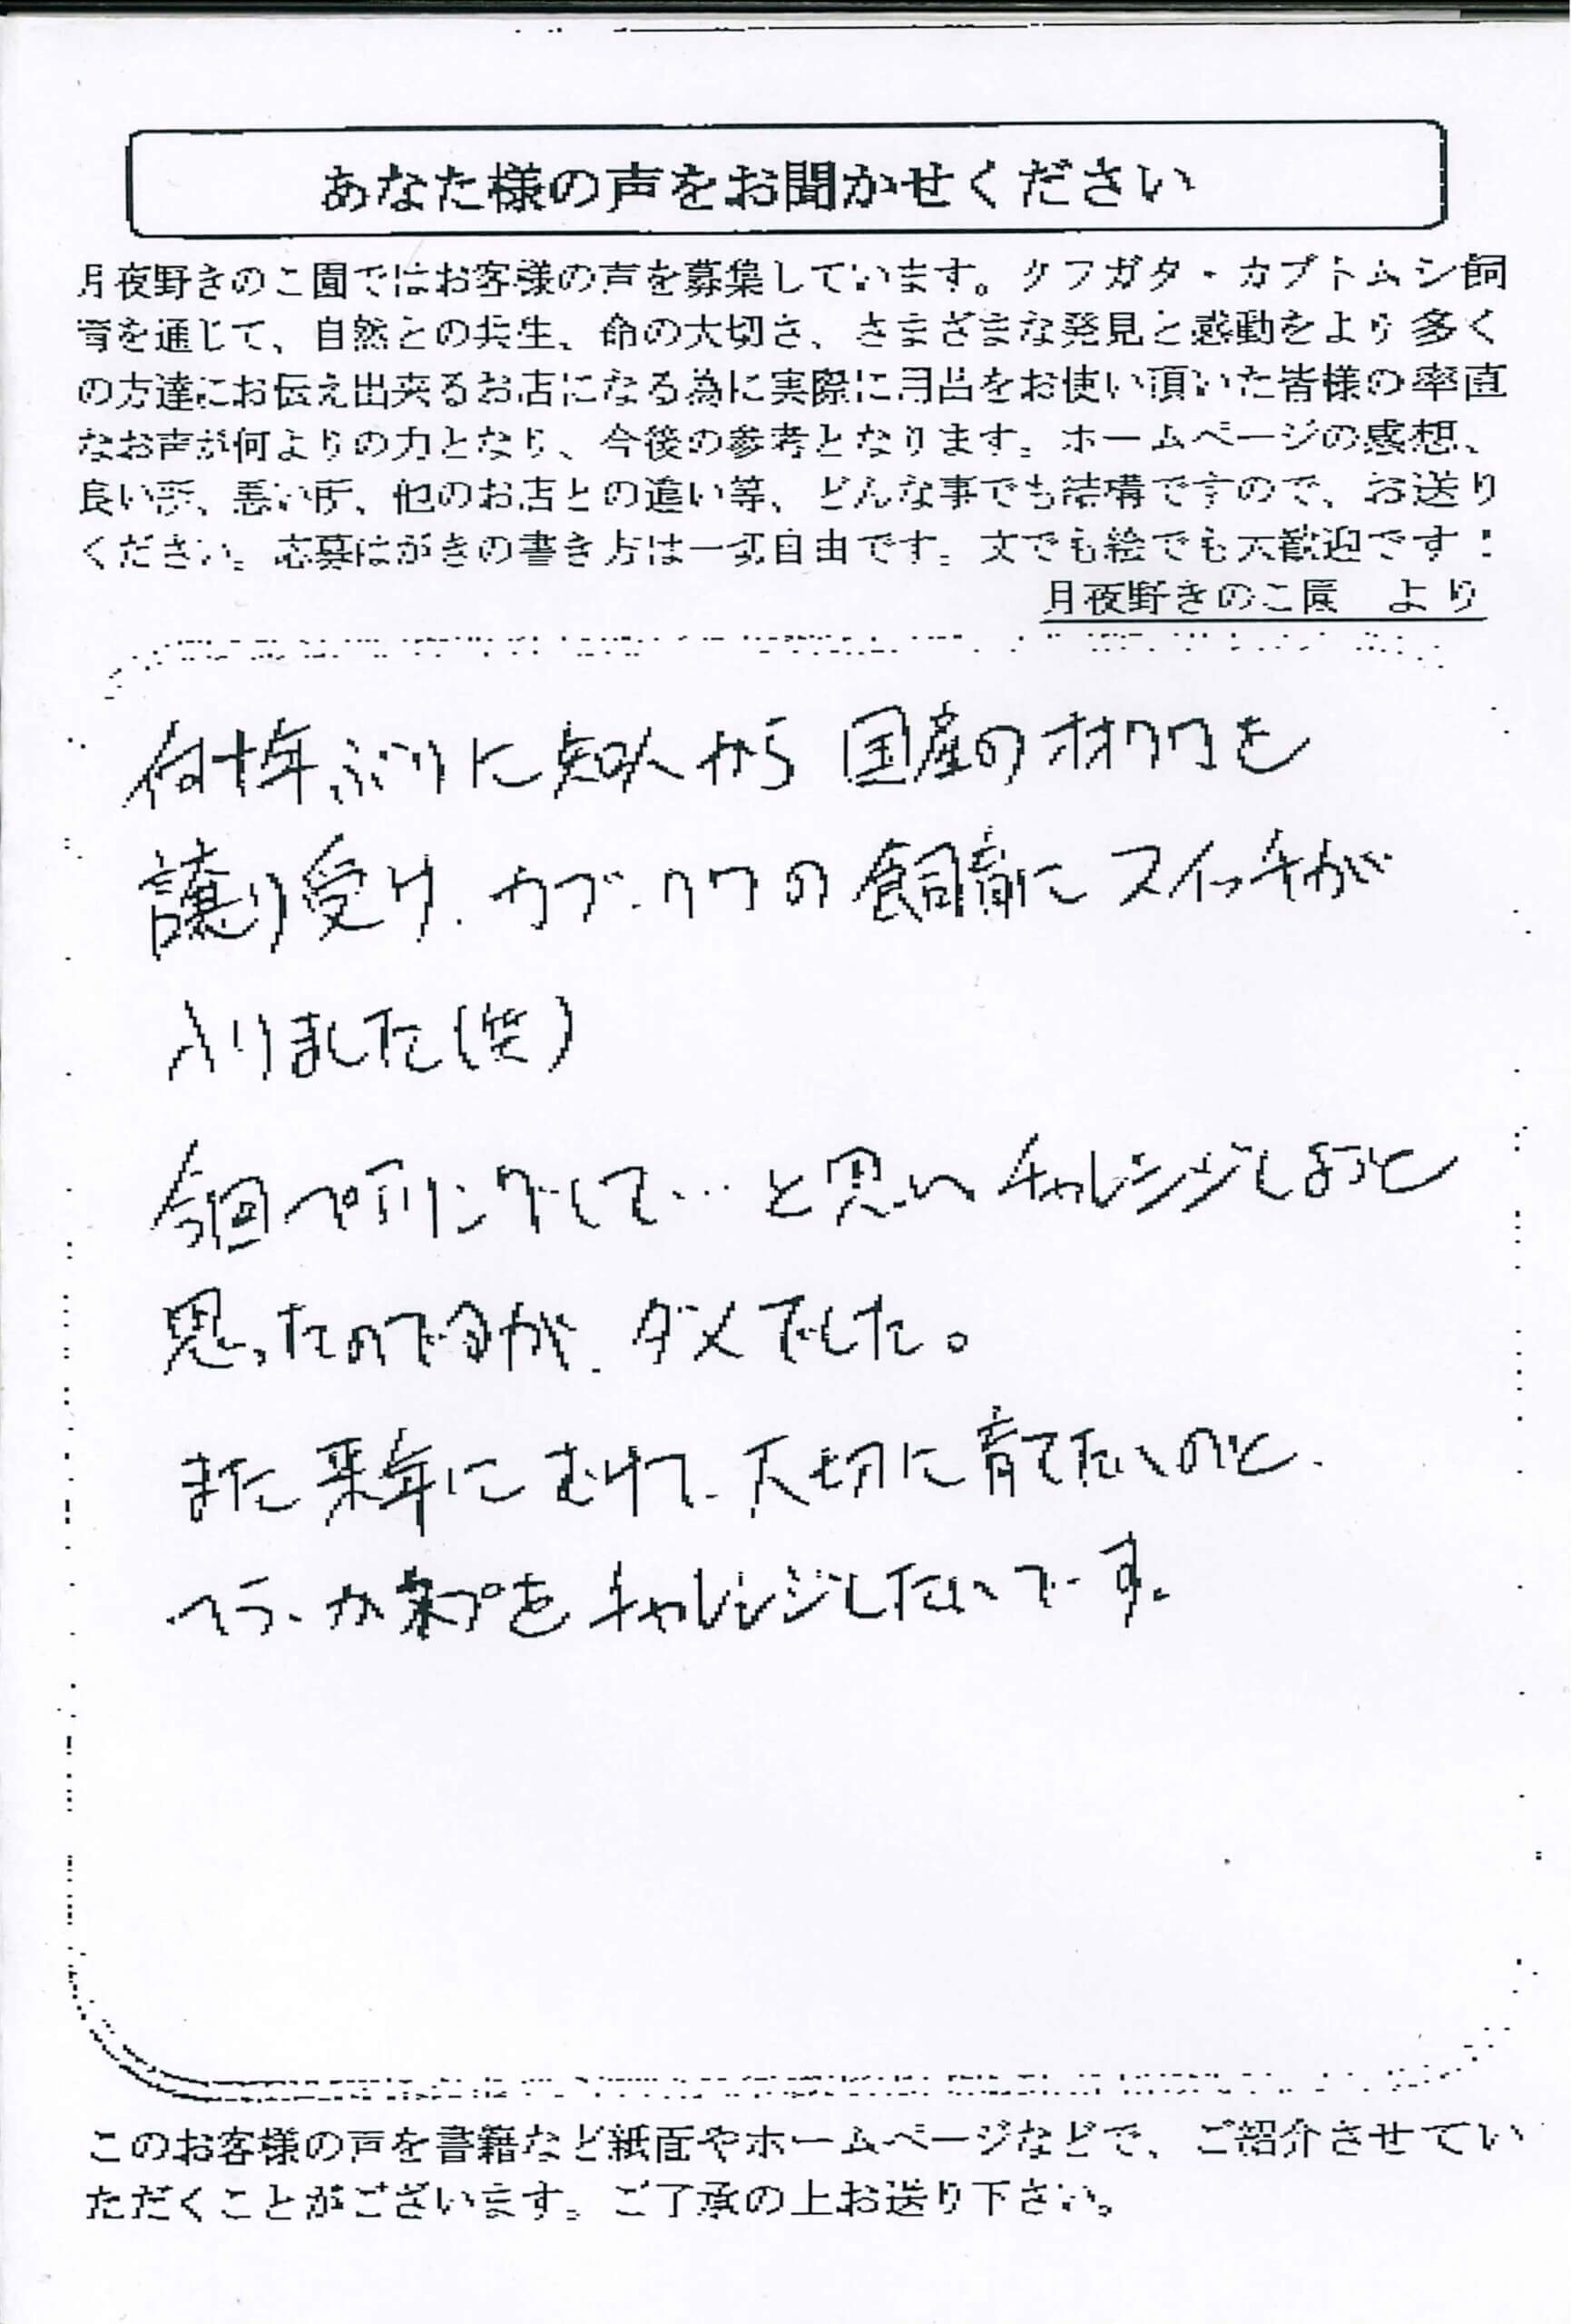 あなた様の声をお聞かせください
月夜野きのこ園ではお客様の声を募集しています。クワガタ・カブトムシ飼
育を通じて、自然との共生、命の大切さ、さまざまな発見と感動をより多く
の方達にお伝え出来るお店になる為に実際に用品をお使い頂いた皆様の率直
なお声が何よりの力となり、今後の参考となります。ホームページの感想、
良い所、悪い所、他のお店との違い等、どんな事でも結構ですので、お送り
ください。応募はがきの書き方は一切自由です。文でも絵でも大歓迎です！
月夜野きのこ園　より
何十年ぶりに知人から国産のオオクワを
譲り受け、カブ・クワの飼育にスイッチが
入りました(笑)
今回ペアリングして…と思いチャレンジしようと
思ったのですが、ダメでした。
また来年にむけて、大切に育てたいのと、
チャレンジしたいです。
このお客様の声を書籍など紙面やホームページなどで、ご紹介させてい
ただくことがございます。ご了承の上お送り下さい。